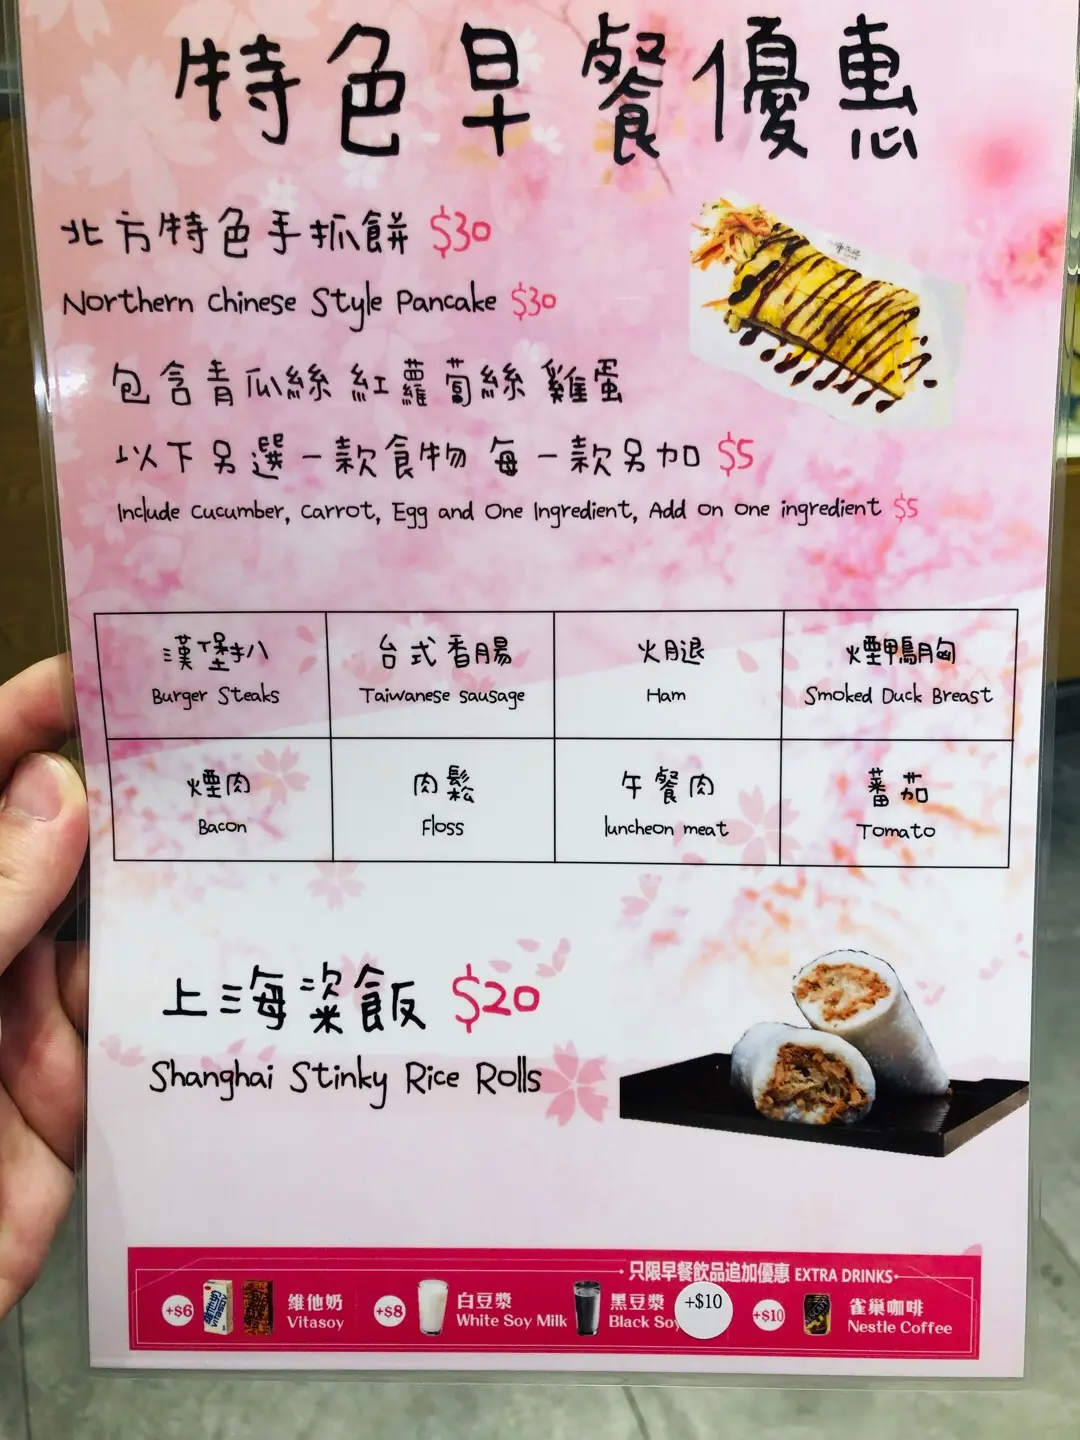 特色早餐優惠
北方特色手抓餅 $30
Northern Chinese Style Pancake $30
包含青瓜絲 紅蘿蔔絲 雞蛋
以下另選一款食物 每一款另加 $5
Include Cucumber, Carrot, Egg and One Ingredient, Add on one ingredient $5
漢堡扒
Burger Steaks
台式香腸
Taiwanese sausage
火腿
Ham
煙鴨胸
Smoked Duck Breast
煙肉
Bacon
肉鬆
Floss
午餐肉
luncheon meat
蕃茄
Tomato
上海粢飯 $20
Shanghai Stinky Rice Rolls
只限早餐飲品追加優惠 EXTRA DRINKS
+$6
維他奶
Vitasoy
+$8
白豆漿
White Soy Milk
黑豆漿
Black Soy
+$10
+$10
雀巢咖啡
Nestle Coffee